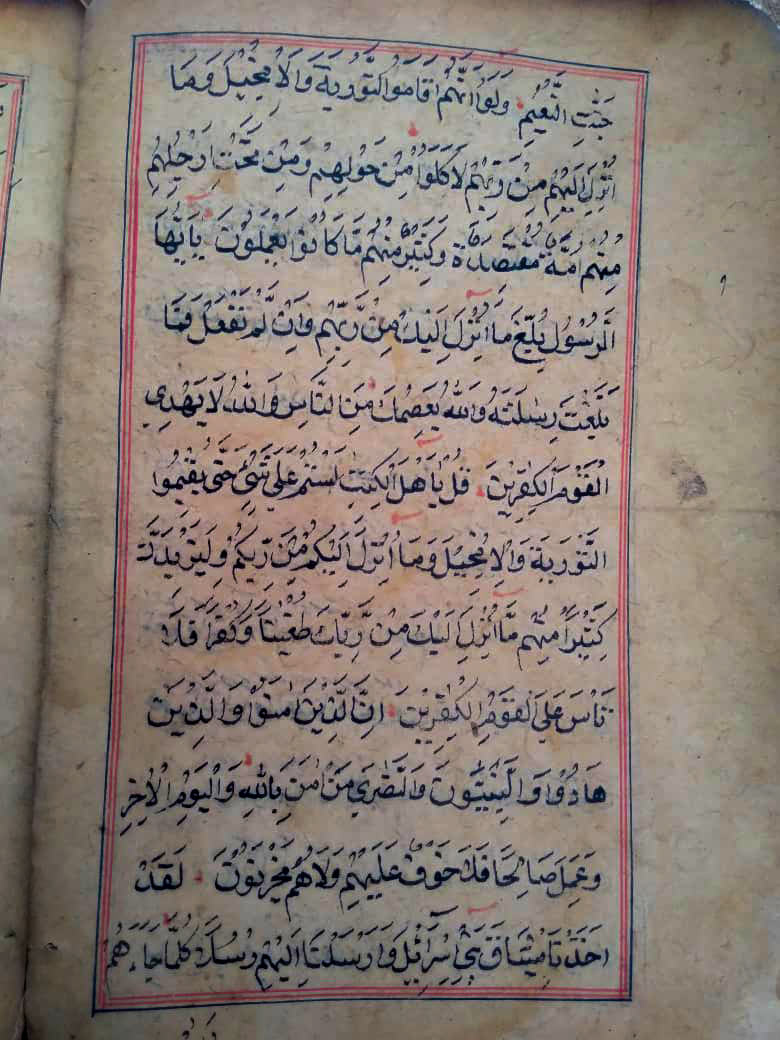 جَنّٰتِ النَّعِيْمِ وَلَوْ اَنَّهُمْ اَقَامُوا التَّوْرٰيةَ وَالْاِنْجِيْلَ وَمَا
اُنْزِلَ اِلَيْهِمْ مِنْ رَبِّهِمْ لَاَكَلُوْا مِنْ حَوْلِهِمْ وَمِنْ تَحْتِ اَرْجُلِهِمْ
مِنْهُمْ اُمَّةٌ مُقْتَصِدَةٌ وَكَثِيْرٌ مِنْهُمْ مَا كَانُوْا يَعْمَلُوْنَ يٰاَيُّهَا
الرَّسُوْلُ بَلِّغْ مَا اُنْزِلَ اِلَيْكَ مِنْ رَّبِّهِمْ وَاِنْ لَّمْ تَفْعَلْ فَمَا
بَلَّغْتَ رِسٰلَتَهُ وَاللّٰهُ يَعْصِمُكَ مِنَ النَّاسِ وَاللّٰهُ لَا يَهْدِي
الْقَوْمَ الْكٰفِرِيْنَ قُلْ يٰاَهْلَ الْكِتٰبِ لَسْتُمْ عَلٰي شَيْءٍ حَتّٰى يُقِيْمُوا
التَّوْرٰيةَ وَالْاِنْجِيْلَ وَمَا اُنْزِلَ اِلَيْكُمْ مِنْ رَبِّكُمْ وَلَيَزِيْدَنَّ
كَثِيْرًا مِنْهُمْ مَّا اُنْزِلَ اِلَيْكَ مِنْ رَّبِّكَ طُغْيٰنًا وَكُفْرًا فَلَا
تَاْسَ عَلَي الْقَوْمِ الْكٰفِرِيْنَ اِنَّ الَّذِيْنَ اٰمَنُوْا وَالَّذِيْنَ
هَادُوْا وَالنَّصٰرٰي مَنْ اٰمَنَ بِاللّٰهِ وَالْيَوْمِ الْاٰخِرِ
وَعَمِلَ صَالِحًا فَلَا خَوْفٌ عَلَيْهِمْ وَلَا هُمْ يَحْزَنُوْنَ لَقَدْ
اَخَذْنَا مِيْثَاقَ بَنِيْ اِسْرَائِيْلَ وَاَرْسَلْنَا اِلَيْهِمْ رُسُلًا كُلَّمَا جَاءَهُمْ